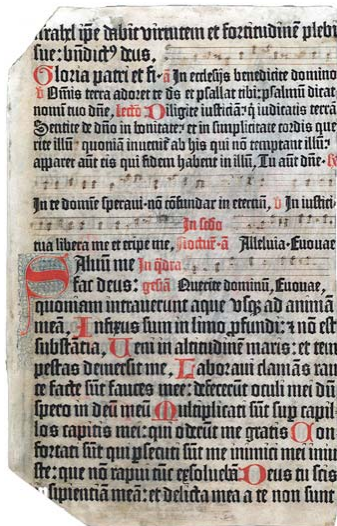 israhel ip̄e dabit virtutem et fortitudinē plebi
sue: bn̄dictꝰ deus.
Gloria patri et fi. a In ecclesijs benedicite domino
v Om̄is terra adoret te ds̄ et psallat tibi: psalmū dicat
nomī tuo dn̄e, lectō Diligite iusticiā: q̄ iudicatis terrā
Sentite de dn̄o in bonitate: et in simplicitate cordis que
rite illū quoniā inuenit̄ ab his qui nō temptant illū:
apparet aūt eis qui fidem habent in illū, Tu aūt dn̄e. R
In te domine speraui. nō cōfundar in eternū, v In iustici.
In scd̄o
tua libera me et eripe me, Noctur. a Alleluia. Euouae
Saluū me In q̄dra
fac deus: gesiā Querite dominū, Euouae,
quoniam intrauerunt aque vsq; ad animā
meā, Infixus sum in limo ꝓfundi: ⁊ nō est
substācia, Ueni in altitudinē maris: et tem
pestas demersit me, Laboraui clamās rau
ce facte sūt fauces mee: defecerūt oculi mei dū
spero in deū meū Multiplicati sūt suꝑ capil
los capitis mei: qui oderūt me gratis Con
fortati sūt qui ꝑsecuti sūt me inimici mei iniu
ste: que nō rapui tūc exsoluebā Deus tu scis
insipientiā meā: et delicta mea a te non sunt